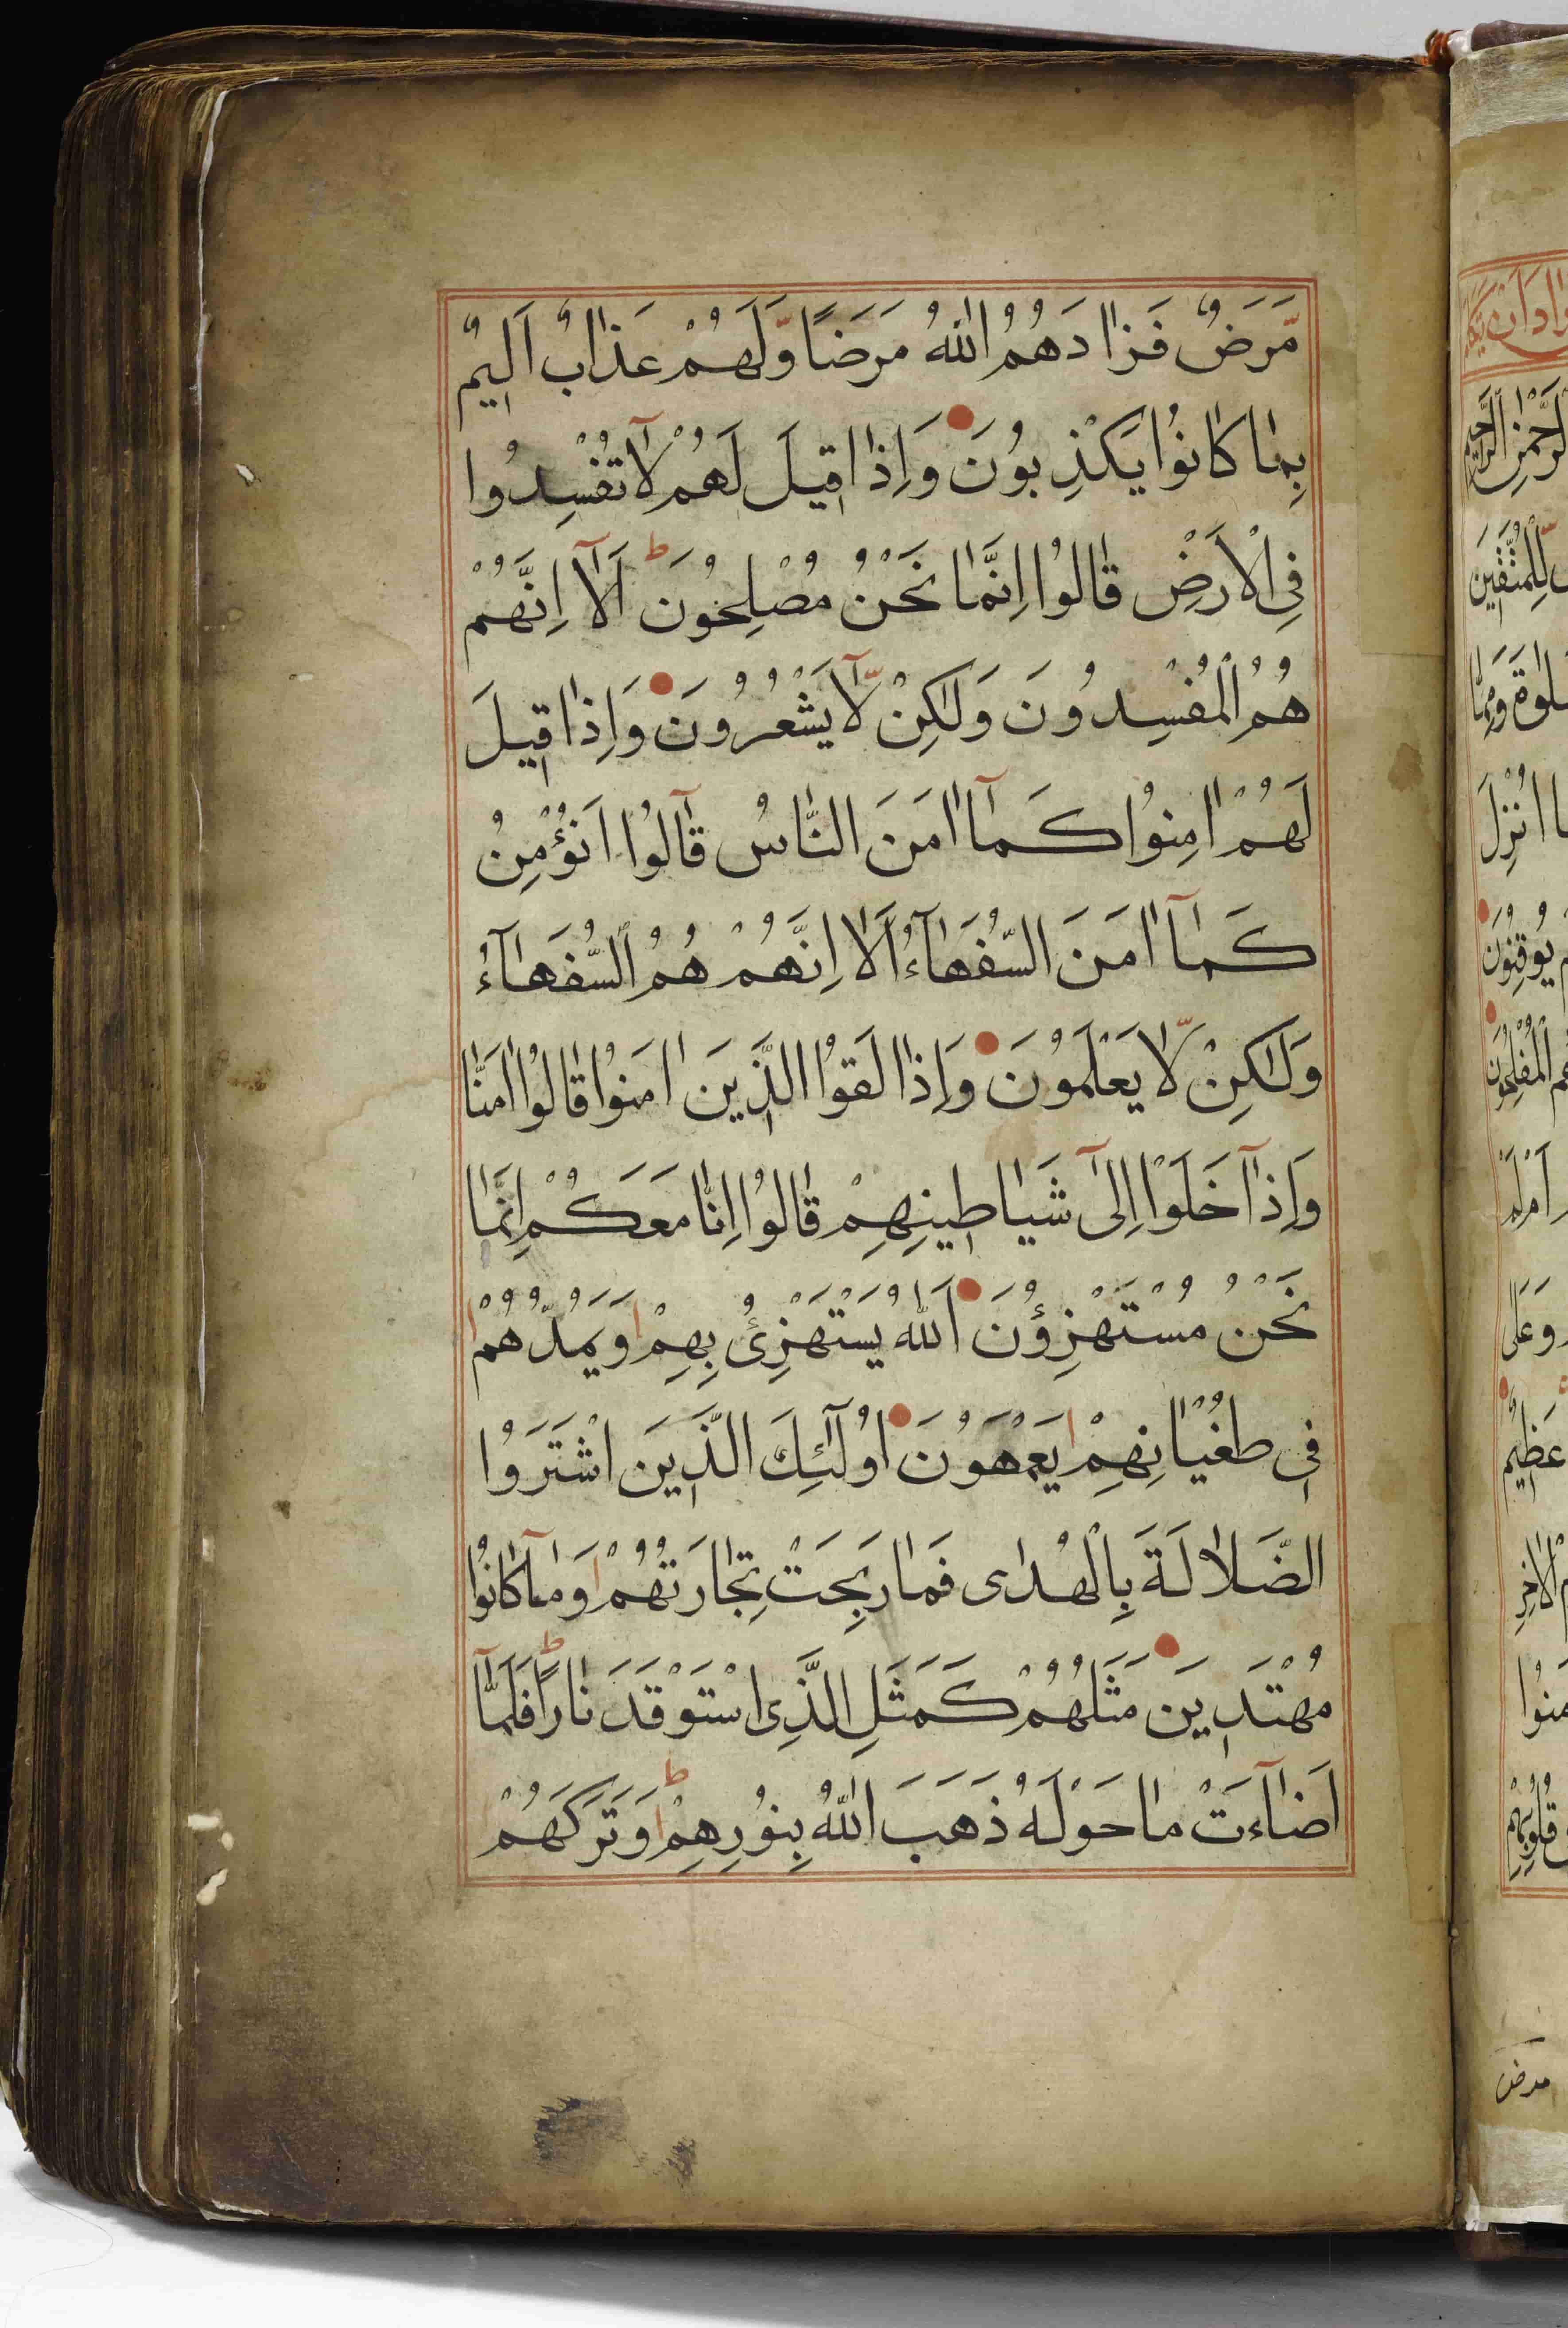 مَّرَضٌ فَزَادَهُمُ اللّٰهُ مَرَضًا وَّلَهُمْ عَذَابٌ اَلِيمٌ
بِمَا كَانُوا يَكْذِبُونَ وَاِذَا قِيلَ لَهُمْ لَآ تُفْسِدُوا
فِى الْاَرْضِ قَالُوا اِنَّمَا نَحْنُ مُصْلِحُونَ ط اَلَآ اِنَّهُمْ
هُمُ الْمُفْسِدُونَ وَلٰكِنْ لَّا يَشْعُرُونَ وَاِذَا قِيلَ
لَهُمْ اٰمِنُوا كَمَآ اٰمَنَ النَّاسُ قَالُوا اَنُؤْمِنُ
كَمَآ اٰمَنَ السُّفَهَآءُ اَلَا اِنَّهُمْ هُمُ السُّفَهَآءُ
وَلٰكِنْ لَّا يَعْلَمُونَ وَاِذَا لَقُوا الَّذِينَ اٰمَنُوا قَالُوا اٰمَنَّا
وَاِذَا خَلَوْا اِلٰى شَيَاطِينِهِمْ قَالُوا اِنَّا مَعَكُمْ اِنَّمَا
نَحْنُ مُسْتَهْزِؤُنَ اَللّٰهُ يَسْتَهْزِئُ بِهِمْ وَيَمُدُّهُمْ
فِى طُغْيَانِهِمْ يَعْمَهُونَ اُولٰٓئِكَ الَّذِينَ اشْتَرَوُا
الضَّلَالَةَ بِالْهُدٰى فَمَا رَبِحَتْ تِجَارَتُهُمْ وَمَا كَانُوا
مُهْتَدِينَ مَثَلُهُمْ كَمَثَلِ الَّذِى اسْتَوْقَدَ نَارًا ط فَلَمَّآ
اَضَآءَتْ مَا حَوْلَهُ ذَهَبَ اللّٰهُ بِنُورِهِمْ ط وَتَرَكَهُمْ
مرض